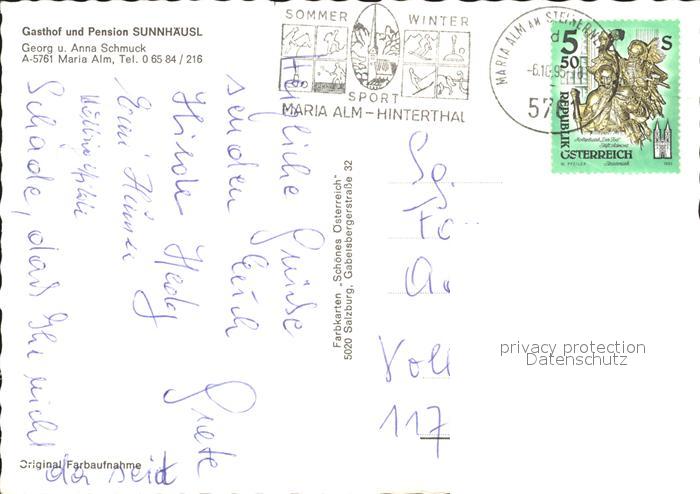 Gasthof und Pension SUNNHÄUSL
Georg u. Anna Schmuck
A-5761 Maria Alm, Tel. 0 65 84 / 216
SOMMER WINTER
SPORT
MARIA ALM - HINTERTHAL
MARIA ALM AM STEINERN
-6.10.95
57
5 50 S
REPUBLIK
ÖSTERREICH
Herzliche Grüße
senden Euch
Hirde Hedy Grete
Erni Hansi
Schade, daß Ihr nicht
da seid
Farbkarten „Schönes Österreich"
5020 Salzburg, Gabelsbergerstraße 32
Original Farbaufnahme
Sg.
Fe
A
Voll
117
privacy protection
Datenschutz